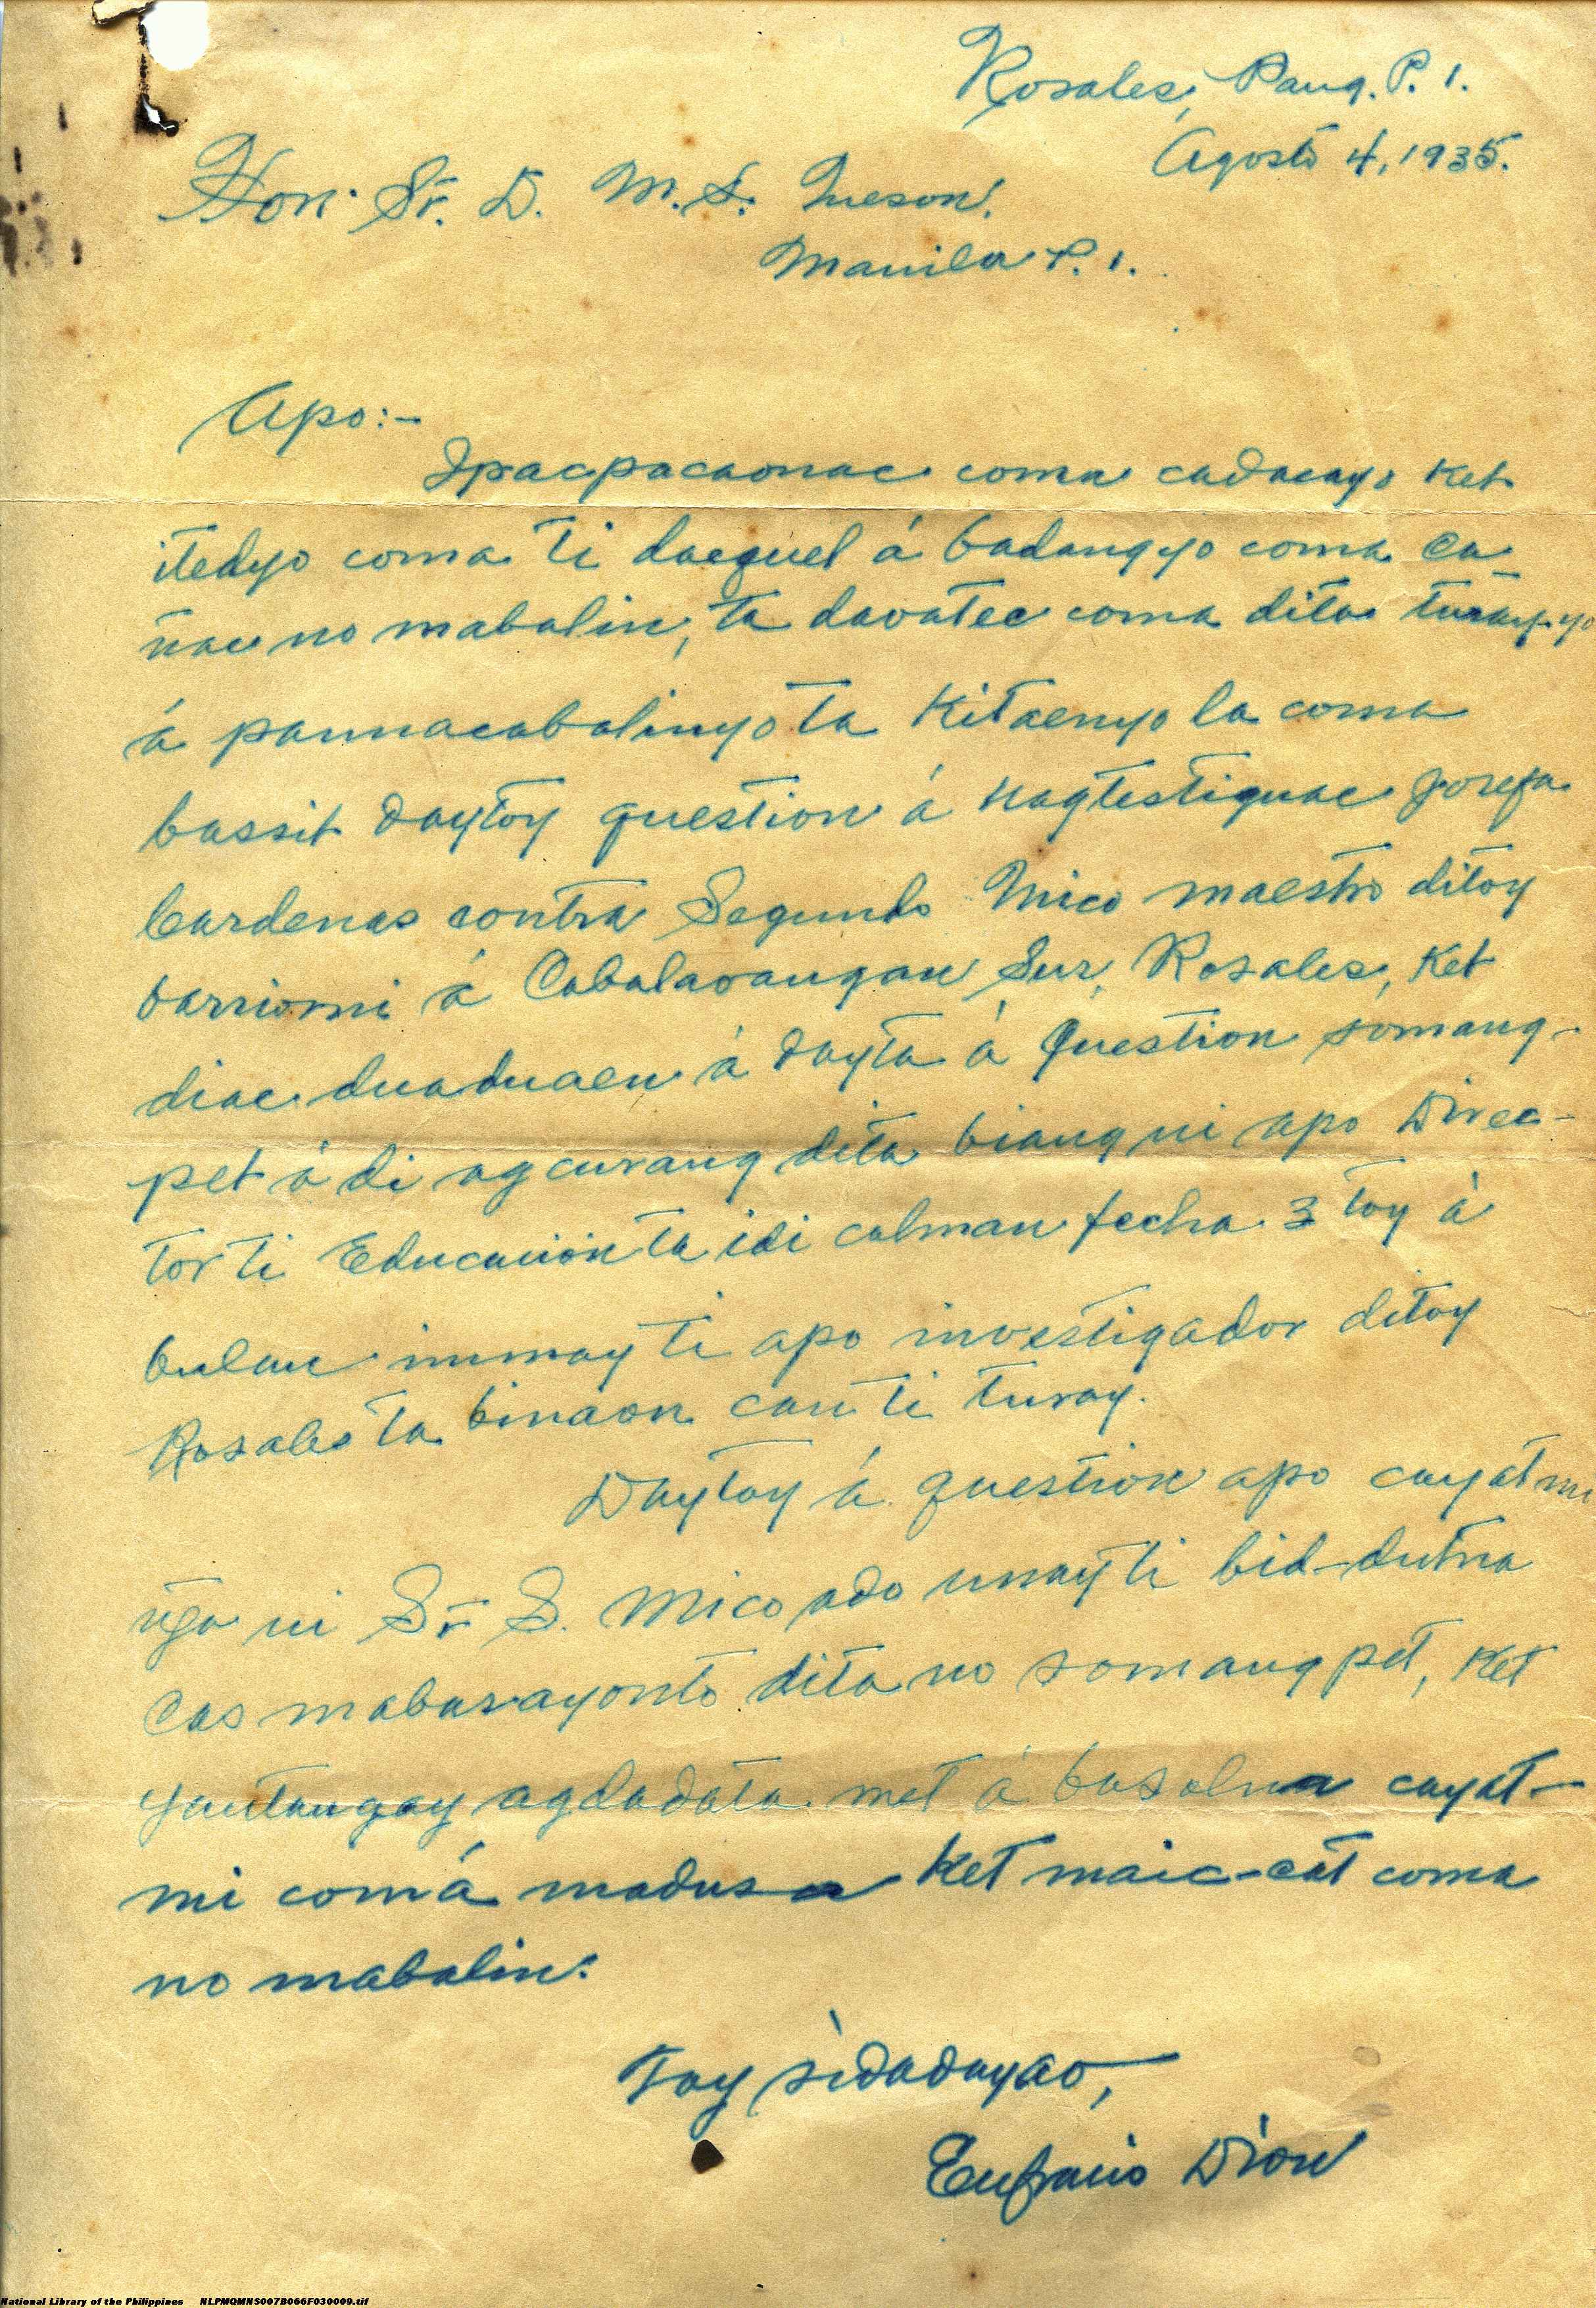 Rosales, Pang. P. I.
Agosto 4, 1935.
Hon. Sr. D. M. L. Queson.
Manila P. I.
Apo:-
Ipacpacaonac coma cadacayo ket
itedyo coma ti dacquel á badangyo coma ca-
ñac no mabalin, ta davatec coma dita turay yo
á pannacabalinyo ta kitaenyo la coma
bassit daytoy question á nagtestiguac Josefa
Cardenas contra Segundo Mico maestro ditoy
barriomi á Cabalaoangan Sur, Rosales, ket
diac duaduaen á dayta á question somang-
pet á di agcurang dita biang ni apo Direc-
tor ti Educación ta idi calman fecha 3 toy á
bulan immay ti apo investigador ditoy
Rosales ta binaon can ti turay.
Daytoy á question apo cayatmi
nga ni Sr S. Mico ado unay ti bid-dutna
cas mabasayonto dita no somangpet, ket
yantangay agdadata met á basolna cayat-
mi comá madusa ket maic-cat coma
no mabalin.
Toy sidadayao,
Eufracio Dion
National Library of the Philippines NLPMQMNS007B066F030009.tif